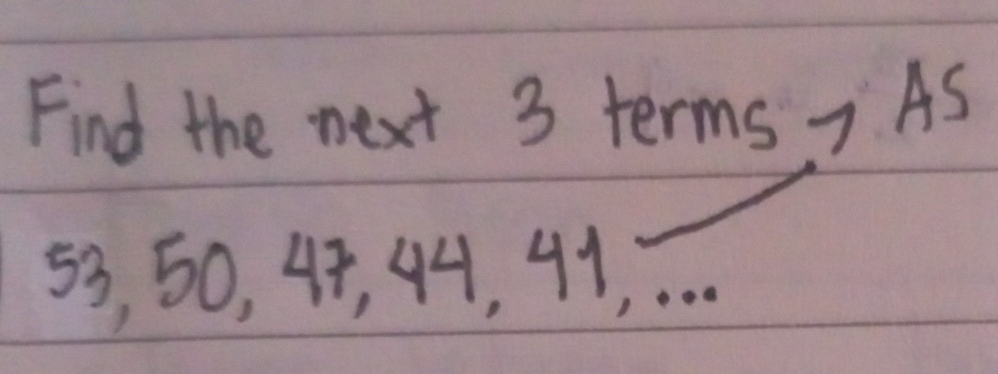 Find the next 3 terms → AS
53, 50, 47, 44, 41, ...